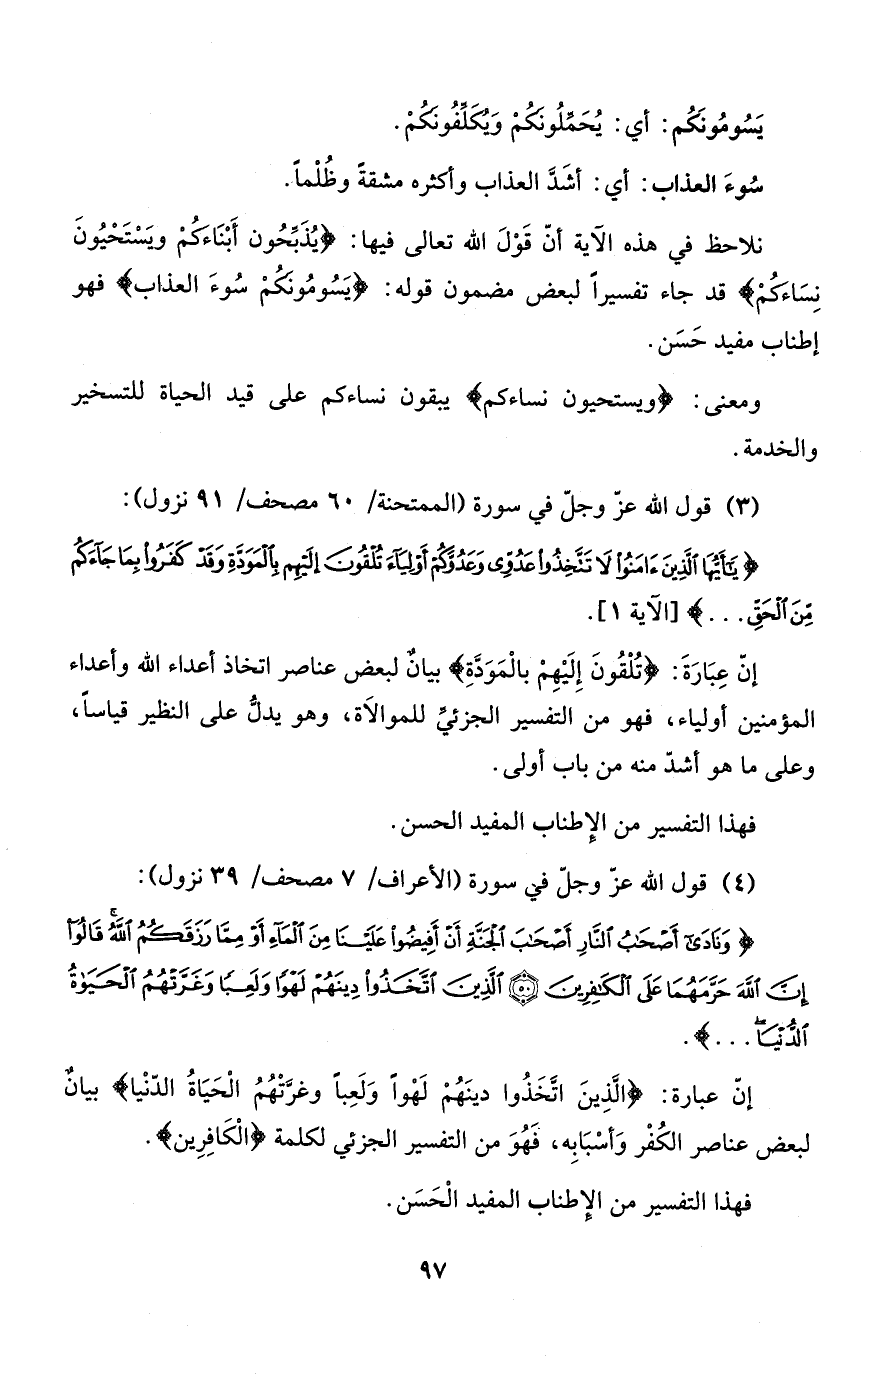 يَسُومُونَكُم: أي: يُحَمِّلُونَكُمْ وَيُكَلِّفُونَكُمْ.
سُوءَ العذاب: أي: أشَدَّ العذاب وأكثره مشقةً وظُلْماً.
نلاحظ في هذه الآية أنّ قَوْلَ الله تعالى فيها: ﴿يُذَبِّحُون أَبْنَاءكُمْ ويَسْتَحْيُونَ
نِسَاءَكُمْ﴾ قد جاء تفسيراً لبعض مضمون قوله: ﴿يَسُومُونَكُمْ سُوءَ العذاب﴾ فهو
إطناب مفيد حَسَن.
ومعنى: ﴿ويستحيون نساءكم﴾ يبقون نساءكم على قيد الحياة للتسخير
والخدمة.
(٣) قول الله عزّ وجلّ في سورة (الممتحنة/ ٦٠ مصحف/ ٩١ نزول):
﴿يَٰٓأَيُّهَا ٱلَّذِينَ ءَامَنُوا۟ لَا تَتَّخِذُوا۟ عَدُوِّى وَعَدُوَّكُمْ أَوْلِيَآءَ تُلْقُونَ إِلَيْهِم بِٱلْمَوَدَّةِ وَقَدْ كَفَرُوا۟ بِمَا جَآءَكُم
مِّنَ ٱلْحَقِّ...﴾ [الآية ١].
إنّ عِبَارَةَ: ﴿تُلْقُونَ إِلَيْهِمْ بالْمَوَدَّةِ﴾ بيانٌ لبعض عناصر اتخاذ أعداء الله وأعداء
المؤمنين أولياء، فهو من التفسير الجزئيّ للموالاة، وهو يدلُّ على النظير قياساً،
وعلى ما هو أشدّ منه من باب أولى.
فهذا التفسير من الإِطناب المفيد الحسن.
(٤) قول الله عزّ وجلّ في سورة (الأعراف/ ٧ مصحف/ ٣٩ نزول):
﴿وَنَادَىٰٓ أَصْحَٰبُ ٱلنَّارِ أَصْحَٰبَ ٱلْجَنَّةِ أَنْ أَفِيضُوا۟ عَلَيْنَا مِنَ ٱلْمَآءِ أَوْ مِمَّا رَزَقَكُمُ ٱللَّهُ ۚ قَالُوٓا۟
إِنَّ ٱللَّهَ حَرَّمَهُمَا عَلَى ٱلْكَٰفِرِينَ ۝٥٠ ٱلَّذِينَ ٱتَّخَذُوا۟ دِينَهُمْ لَهْوًا وَلَعِبًا وَغَرَّتْهُمُ ٱلْحَيَوٰةُ
ٱلدُّنْيَا ۖ...﴾.
إنّ عبارة: ﴿الَّذِينَ اتَّخَذُوا دينَهُمْ لَهْواً وَلَعِباً وغرَّتْهُمُ الْحَيَاةُ الدّنْيا﴾ بيانٌ
لبعض عناصر الكُفْر وَأسْبَابِه، فَهُوَ من التفسير الجزئي لكلمة ﴿الْكَافِرِين﴾.
فهذا التفسير من الإِطناب المفيد الْحَسَن.
٩٧